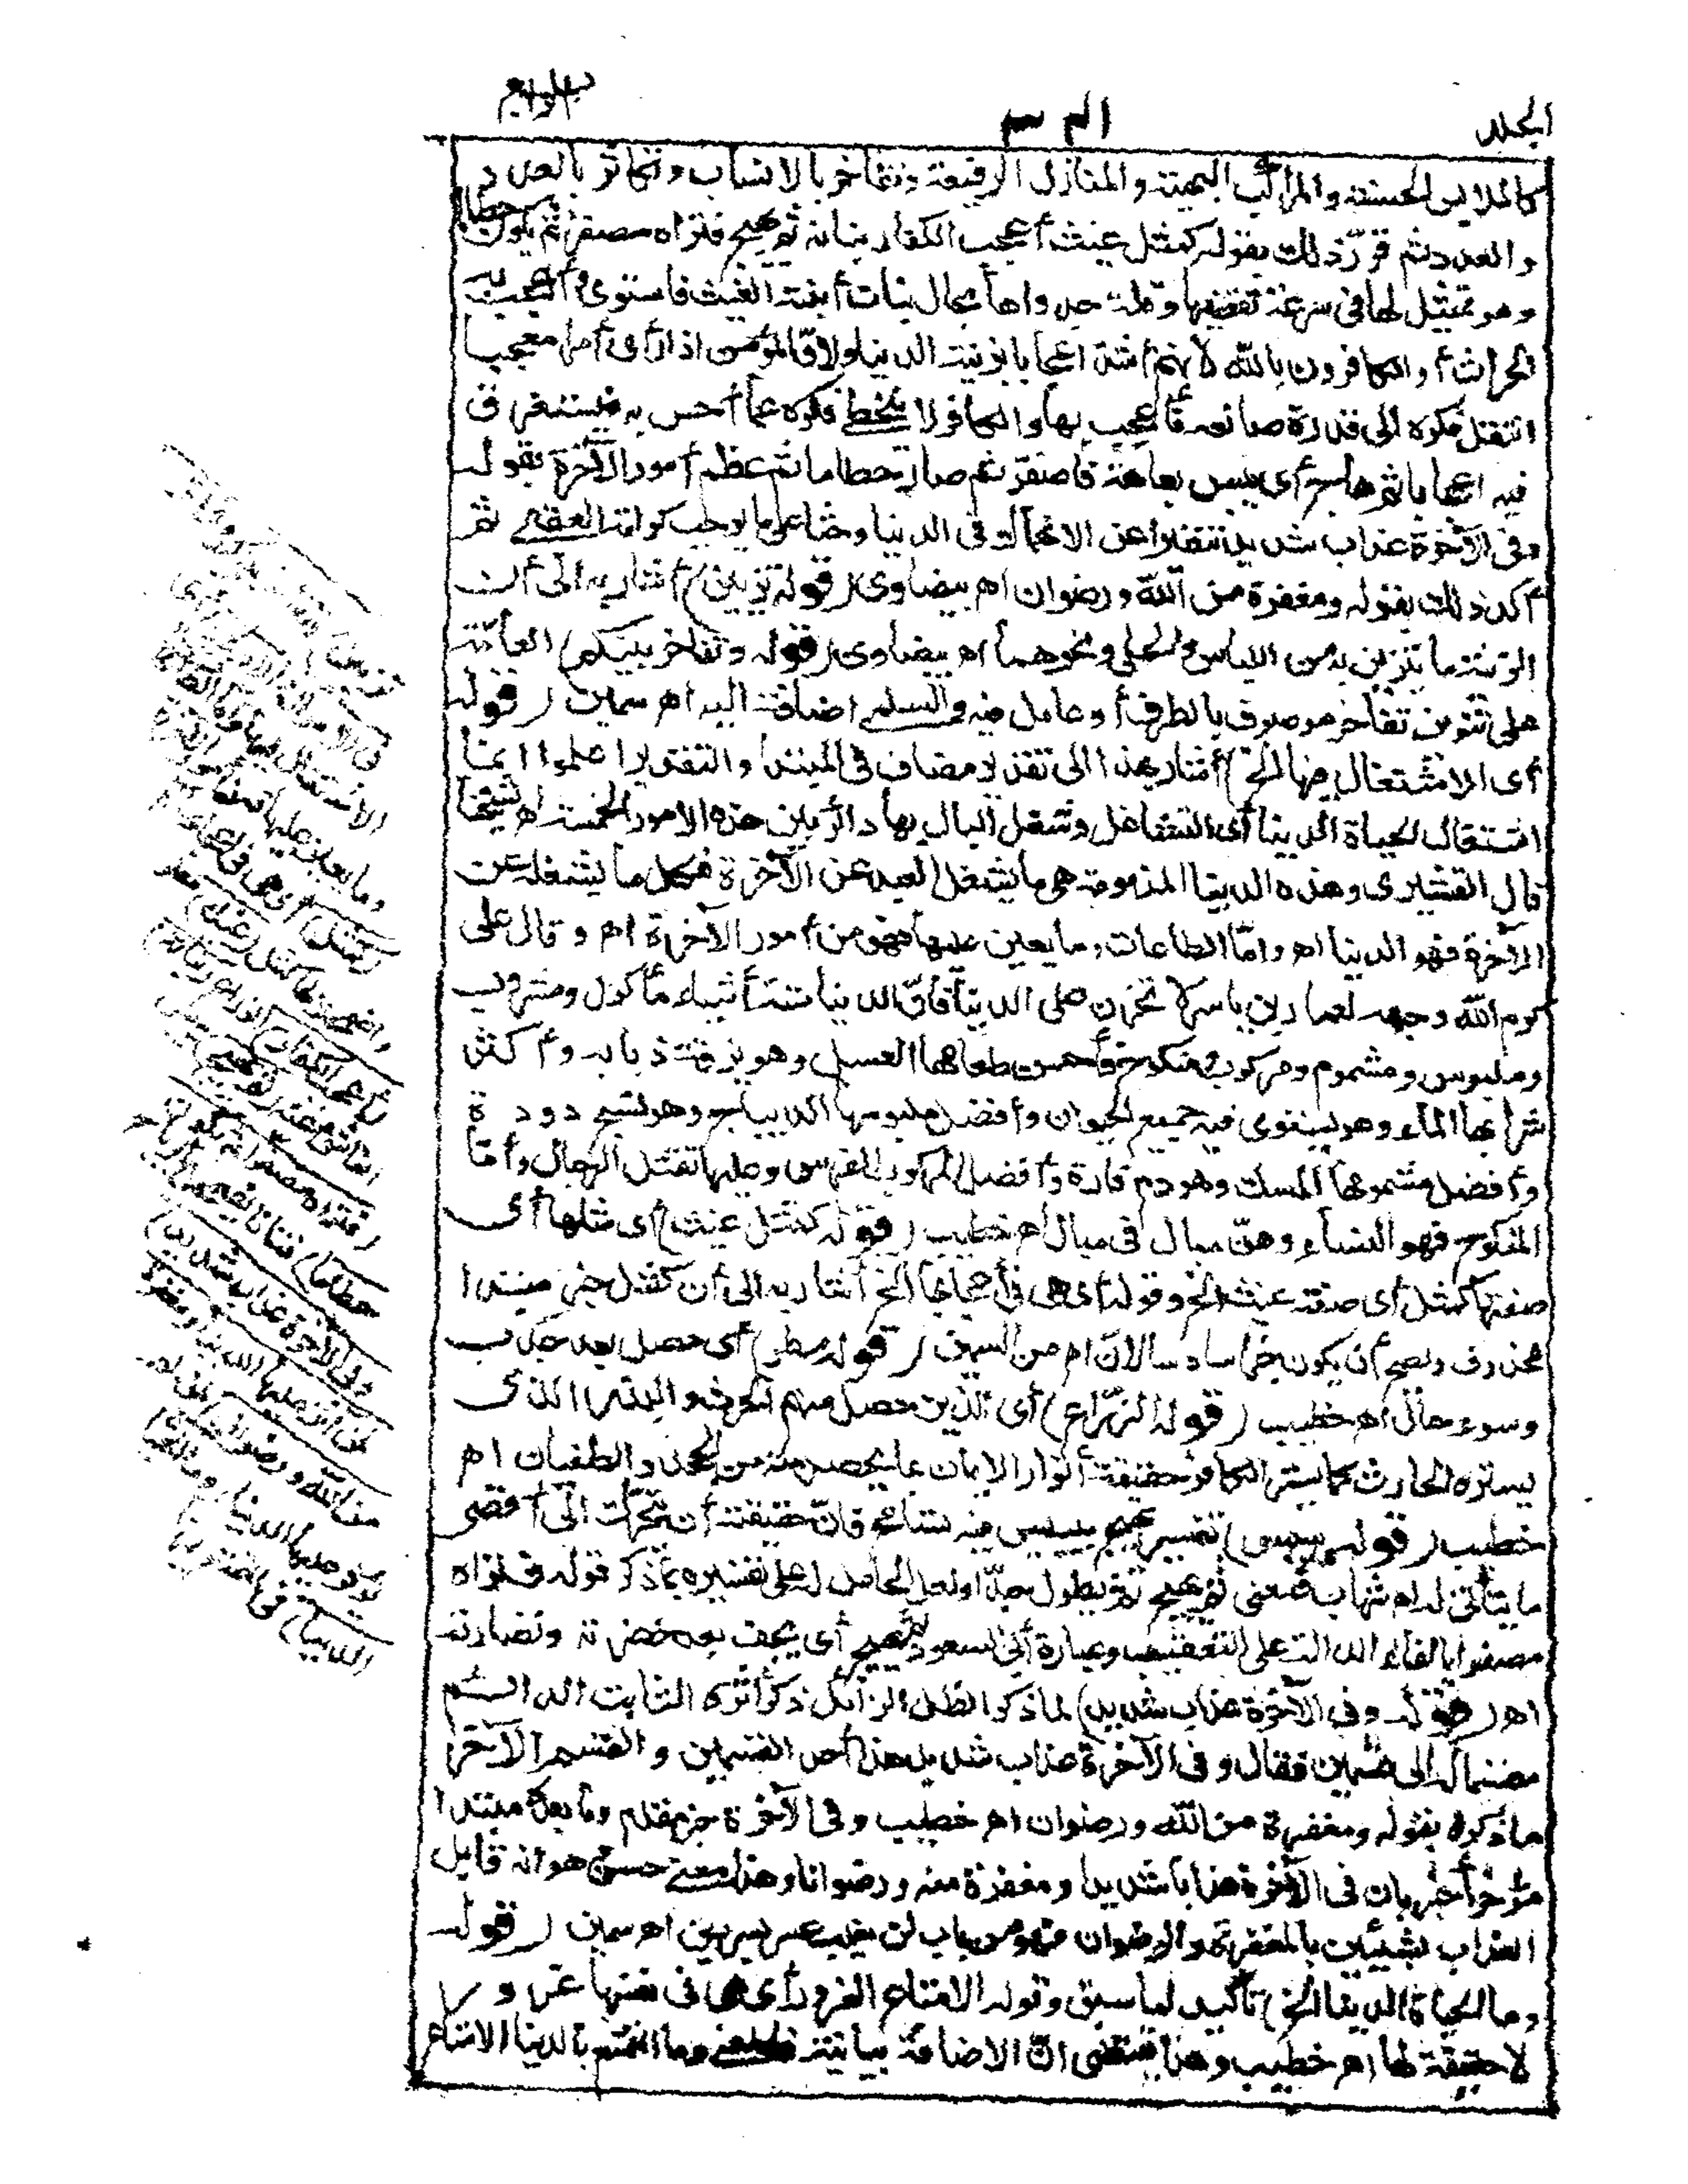 الجلد
الرابع
كالملابس الحسنة والمراكب البهية والمنازل الرفيعة وتفاخر بالانساب وتكاثر بالعدد
والعدد ثم قرّر ذلك بقوله كمثل غيث أعجب الكفار نباته ثم يهيج فتراه مصفرا ثم يكون حطاما
وهو تمثيل لها في سرعة تقضيها وقلة جدواها بحال نبات أنبته الغيث فاستوى وأعجب به
الحراث أو الكافرون بالله لانهم أشد اعجابا بزينة الدنيا ولانّ المؤمن اذا رأى أمرا معجبا
انتقل فكره الى قدرة صانعه فأعجب بها والكافر لا يتخطى فكره عما أحس به فيستغرق
فيه اعجابا ثم هاج أى يبس بعاهة فاصفرّ ثم صار حطاما ثم عظم أمور الآخرة بقوله
وفى الآخرة عذاب شديد تنفيرا عن الانهماك فى الدنيا وحثا على ما يوجب كرامة العقبى ثم
أكد ذلك بقوله ومغفرة من الله ورضوان اهـ بيضاوى (قوله تزين) أشار به الى أن
الزينة ما يتزين به من اللباس والحلى ونحوهما اهـ بيضاوى (قوله وتفاخر بينكم) العامّة
على تنوين تفاخر موصوف بالظرف أو عامل فيه والسلمى اضافه اليه اهـ سمين (قوله
أى الاشتغال فيها الخ) أشار بهذا الى تقدير مضاف فى المبتدا والتقدير اعلموا انما
اشتغال الحياة الدنيا أى التشاغل وشغل البال بها دائر بين هذه الامور الخمسة اهـ شيخنا
قال القشيرى وهذه الدنيا المذمومة هى ما يشغل العبد عن الآخرة فكل ما يشغله عن
الآخرة فهو الدنيا اهـ وامّا الطاعات وما يعين عليها فهو من أمور الآخرة اهـ وقال على
كرم الله وجهه لعمار بن ياسر لا تحزن على الدنيا فانّ الدنيا ستة أشياء مأكول ومشروب
وملبوس ومشموم ومركوب ومنكوح فأحسن طعامها العسل وهو بزقة ذبابة وأكثر
شرابها الماء وهو يستوى فيه جميع الحيوان وأفضل ملبوسها الديباج وهو نسج دودة
وأفضل مشمومها المسك وهو دم فارة وأفضل المركوب الفرس وعليها تقتل الرجال وأمّا
المنكوح فهو النساء وهنّ مبال فى مبال اهـ خطيب (قوله كمثل غيث) أى مثلها أى
صفتها كمثل أى صفة غيث الخ وقوله أى هى فى اعجابها الخ أشار به الى أن كمثل خبر مبتدا
محذوف ويصح أن يكون خبرا سادسا لانّ اهـ من السمين (قوله مطر) أى حصل بعد جدب
وسوء حال اهـ خطيب (قوله الزرّاع) أى الذين حصل منهم الحرث والبذر الذى
يستره الحارث كما يستر الكافر حقيقة أنوار الايمان بما يحصل منه من الجحد والطغيان اهـ
خطيب (قوله ييبس) تفسير يهيج بييبس فيه تسامح فانّ حقيقته أن يتحرّك الى أقصى
ما يتأتى له اهـ شهاب فمعنى ثم يهيج ثم يطول جدّا ولعل الحامل له على تفسيره بما ذكر قوله فتراه
مصفرا بالفاء الدالة على التعقيب وعبارة أبى السعود ثم يهيج أى يجف بعد خضرته ونضارته
اهـ (قوله وفى الآخرة عذاب شديد) لما ذكر الظل الزائل ذكر أثره الثابت الدائم
مقسما له الى قسمين فقال وفى الآخرة عذاب شديد هذا أحد القسمين والقسم الآخر
ما ذكره بقوله ومغفرة من الله ورضوان اهـ خطيب وفى الآخرة خبر مقدم وما بعده مبتدا
مؤخر أخبر بان فى الآخرة عذابا شديدا ومغفرة منه ورضوانا وهذا معنى حسن هو انه قابل
العذاب بشيئين بالمغفرة والرضوان فهو من باب لن يغلب عسر يسرين اهـ سمين (قوله
وما الحياة الدنيا الخ) تأكيد لما سبق وقوله الامتاع الغرور أى هى فى نفسها غرور
لا حقيقة لها اهـ خطيب وهذا يقتضى انّ الاضافة بيانية وما التمتع بالدنيا الامتاع
الاشتغال
وما يعين عليها
كمثل) أى هى فى اعجابها
فتراه مصفرا ثم يكون
حطاما) فتاتا يضمحل بالرياح
وفى الآخرة عذاب شديد)
لمن آثر عليها الدنيا ومغفرة
من الله ورضوان) لمن لم
يؤثر عليها الدنيا وما الحياة
الدنيا) فى التمتع بها